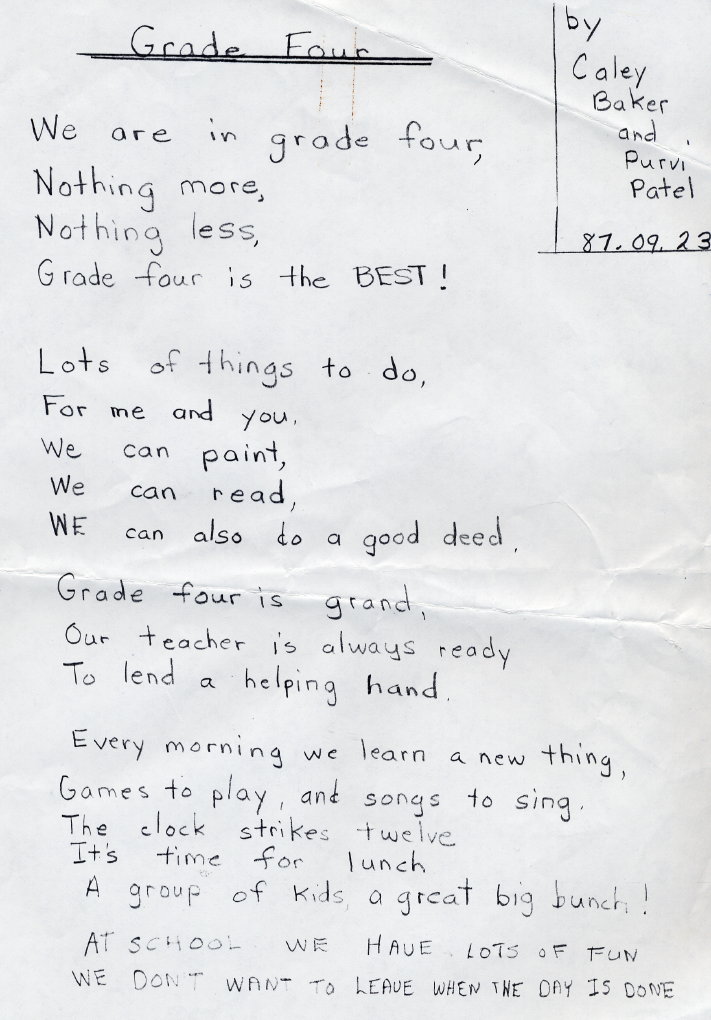 Grade Four
by
Caley
Baker
and
Purvi
Patel
87.09.23
We are in grade four,
Nothing more,
Nothing less,
Grade four is the BEST!
Lots of things to do,
For me and you.
We can paint,
We can read,
WE can also do a good deed.
Grade four is grand,
Our teacher is always ready
To lend a helping hand.
Every morning we learn a new thing,
Games to play, and songs to sing.
The clock strikes twelve
It's time for lunch
A group of kids, a great big bunch!
AT SCHOOL WE HAVE LOTS OF FUN
WE DON'T WANT TO LEAVE WHEN THE DAY IS DONE